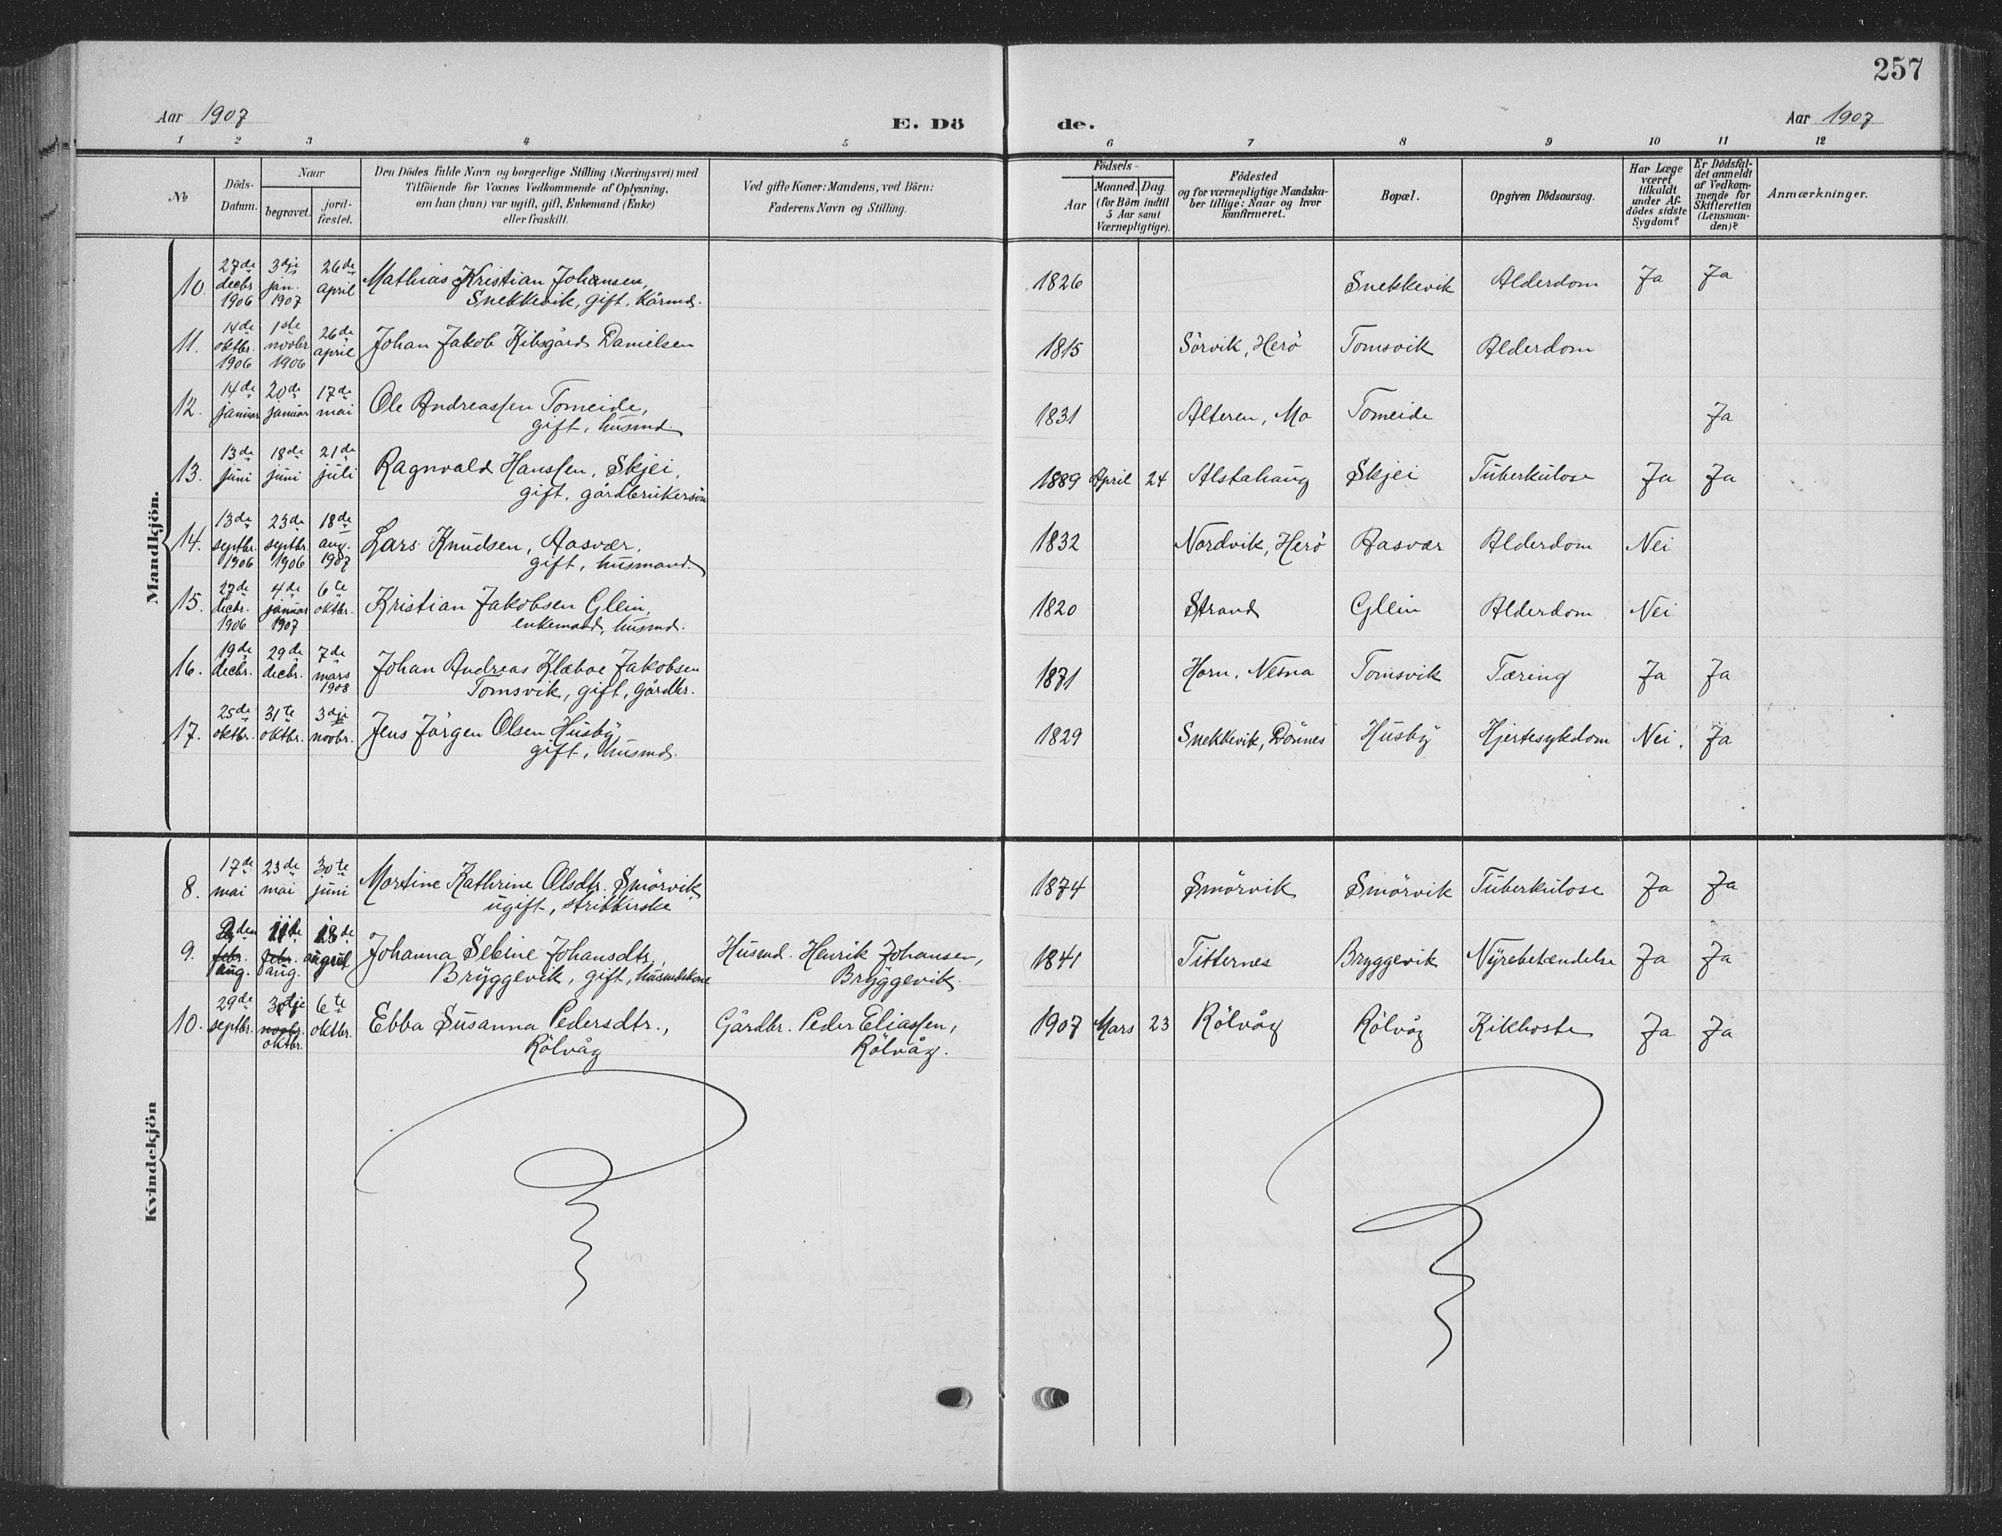 257
Aar 1907
E. Dö
de.
Aar 1907
1 2 3 4 5 6 7 8 9 10 11 12
No
Döds-
Datum.
Naar
begravet.
jord-
fæstet.
Den Dödes fulde Navn og borgerlige Stilling (Næringsvei) med
Tilföiende for Voxnes Vedkommende af Oplysning,
om han (hun) var ugift, gift, Enkemand (Enke)
eller fraskilt.
Ved gifte Koner: Mandens, ved Börn:
Faderens Navn og Stilling.
Födsels-
Aar
Maaned. Dag.
(for Börn indtil
5 Aar samt
Værnepligtige).
Födested
og for værnepligtige Mandsku-
ber tillige: Naar og hvor
konfirmeret.
Bopæl.
Opgiven Dödsaarsag.
Har Læge
været
tilkaldt
under Af-
dödes sidste
Sygdom?
Er Dödsfal-
det anmeldt
af Vedkom-
mende for
Skifteretten
(Lensman-
den)?
Anmærkninger.
Mandkjön.
10. 27de decbr 1906 3dje jan. 1907 26de april Mathias Kristian Johansen,
Snekkevik, gift, kårmd.
1826 Snekkevik Alderdom Ja Ja
11. 14de oktbr. 1906 1ste novbr 1906 26de april Johan Jakob Kibsgård Danielsen
1815 Sörvik, Herö Tomsvik Alderdom
12. 14de januar 20de januar 17de mai Ole Andreassen Tomeide,
gift, husmd.
1831 Alteren, Mo Tomeide Ja
13. 13de juni 18de juni 21de juli Ragnvald Hanssen, Skjei,
gift, gårdbrukersön
1889 April 24 Alstahaug Skjei Tuberkulose Ja Ja
14. 13de septbr. 1906 23de septbr. 1906 18de aug. 1907 Lars Knudsen, Aasvær,
gift, husmand.
1832 Nordvik, Herö Aasvær Alderdom Nei
15. 27de decbr. 1906 4de januar 1907 6te oktbr. Kristian Jakobsen Glein,
enkemand, husmd.
1820 Strand Glein Alderdom Nei
16. 19de decbr. 29de decbr. 7de mars 1908 Johan Andreas Klæboe Jakobsen
Tomsvik, gift, gårdbr.
1871 Horn, Nesna Tomsvik Tæring Ja Ja
17. 25de oktbr. 31te oktbr. 3dje novbr. Jens Jörgen Olsen Husby,
gift, husmd.
1829 Snekkevik, Dönnes Husby Hjertesykdom Nei. Ja
Kvindekjön
8. 17de mai 23de mai 30te juni Martine Kathrine Olsdtr. Smörvik,
ugift, strikkerske
1874 Smörvik Smörvik Tuberkulose Ja Ja
9. 2den febr. aug. 11te febr. aug. 18de august Johanna Sebine Johansdtr,
Bryggevik, gift, husmdskone
Husmd. Henrik Johansen,
Bryggevik.
1841 Titternes Bryggevik Nyrebetændelse Ja Ja
10. 29de septbr. 3dje novbr. oktbr. 6te oktbr. Ebba Susanna Pedersdtr.,
Rölvåg
Gårdbr. Peder Eliassen,
Rölvåg.
1907 Mars 23 Rölvåg Rölvåg Kikhoste Ja Ja